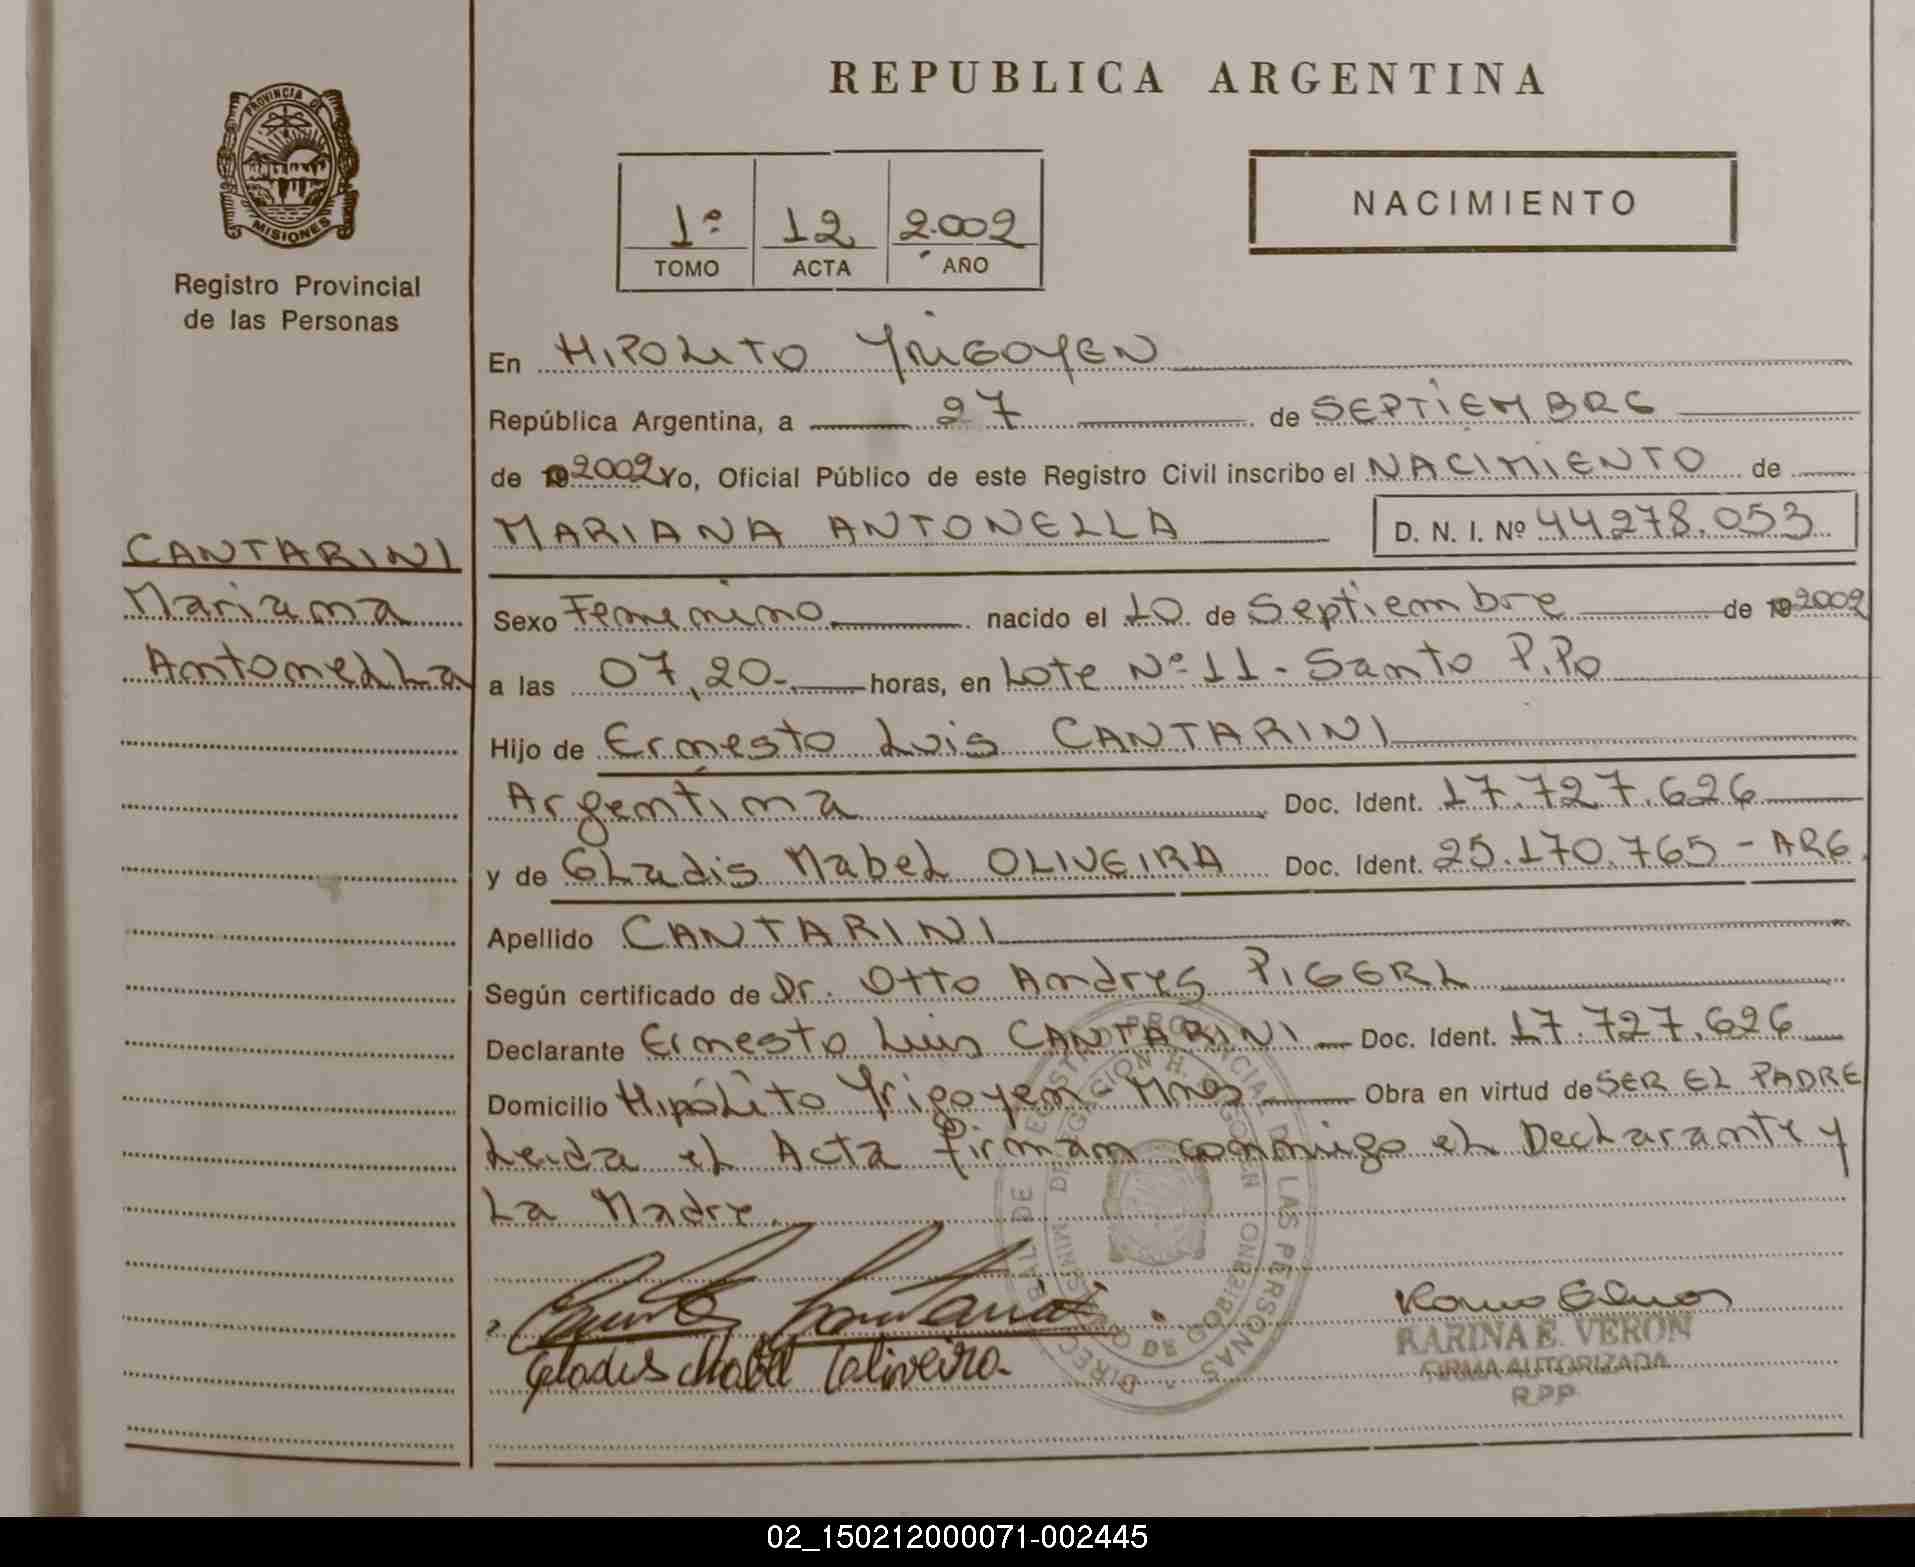 REPUBLICA ARGENTINA
PROVINCIA DE
MISIONES
Registro Provincial
de las Personas
1º 12 2.002
TOMO ACTA AÑO
NACIMIENTO
En HIPOLITO YRIGOYEN
República Argentina, a 27 de SEPTIEMBRE
de 2002 Yo, Oficial Público de este Registro Civil inscribo el NACIMIENTO de
MARIANA ANTONELLA D. N. I. Nº 44.278.053
CANTARINI
Mariana
Antonella
Sexo Femenino nacido el 10 de Septiembre de 2002
a las 07,20.- horas, en Lote Nº 11 - Santo P.Po
Hijo de Ernesto Luis CANTARINI
Argentina Doc. Ident. 17.727.626
y de Gladis Mabel OLIVEIRA Doc. Ident. 25.170.765 - ARG.
Apellido CANTARINI
Según certificado de Dr. Otto Andres PIGERL
Declarante Ernesto Luis CANTARINI Doc. Ident. 17.727.626
Domicilio Hipólito Yrigoyen - Mnes Obra en virtud de SER EL PADRE
Leida el Acta firman conmigo el Declarante y
La Madre.
Gladis Mabel Oliveira.
KARINA E. VERON
FIRMA AUTORIZADA
R.P.P
02_150212000071-002445